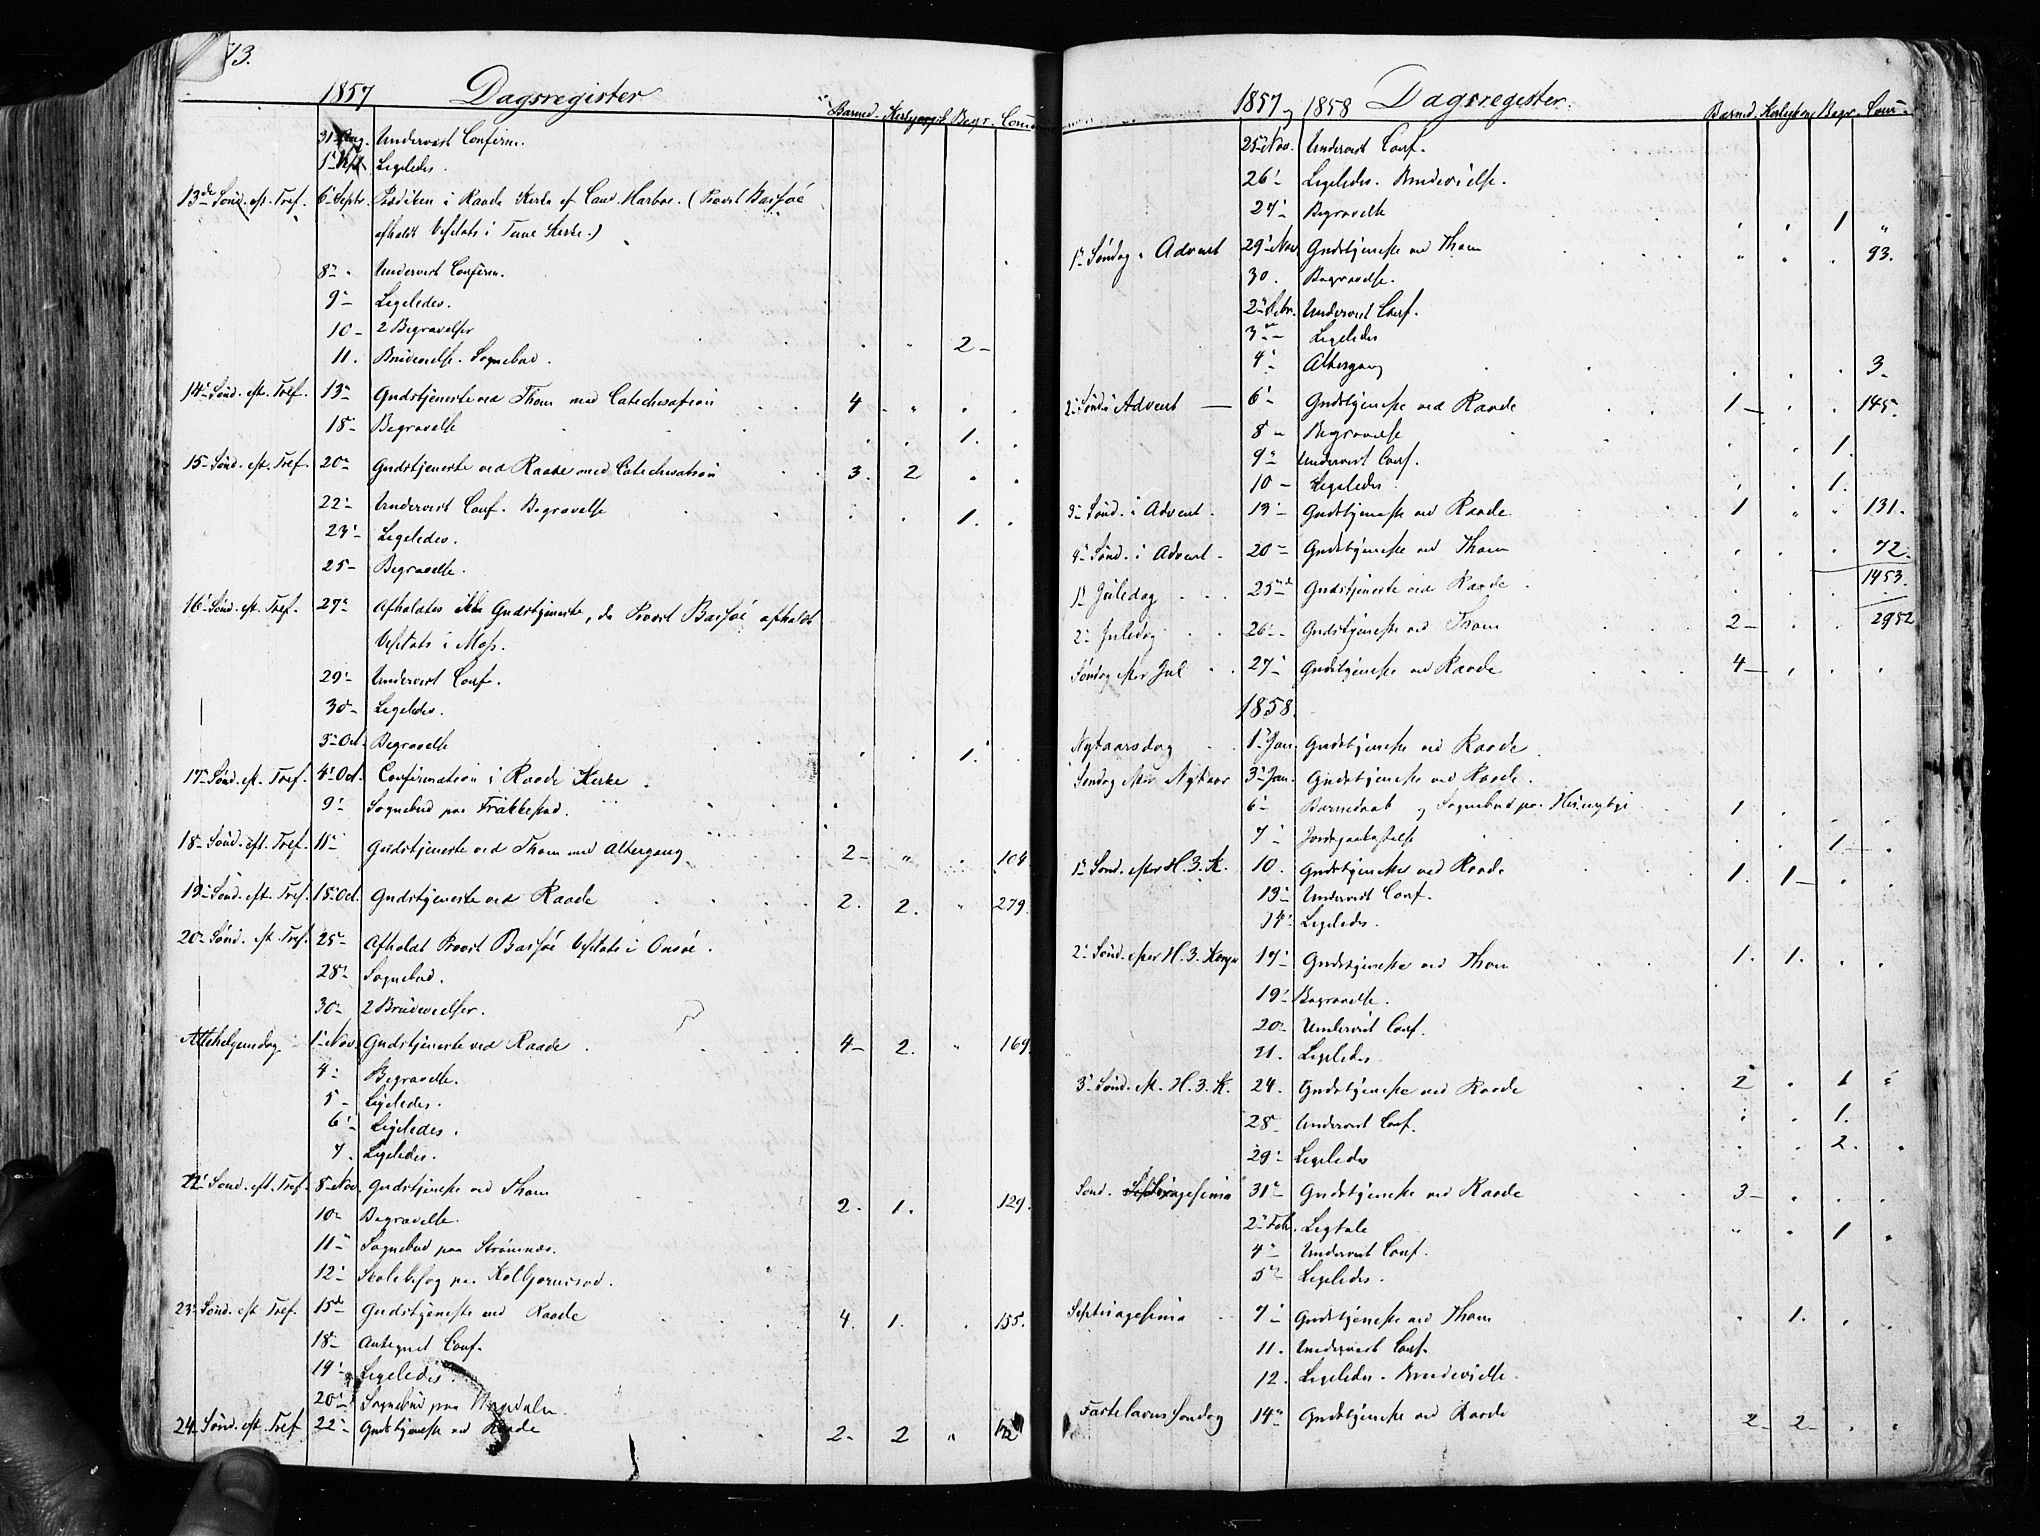 13.
1857 Dagsregister Barned. Kirkegangsk. Begr. Comm
31 Aug. Undervist Confirm.
1 Sept. Ligeledes.
13de Sönd. eft. Tref. 6 Septr. Prædiken i Raade Kirke af Cand. Harboe. (Provst Bassøe
afholdt Visitats i Tune Kirke.)
8 - Undervist Confirm.
9 - Ligeledes.
10 - 2 Begravelser 2 -
11. Brudevielse. Sognebud.
14 Sönd. eft. Tref. 13 - Gudstjeneste ved Thom med Catechisation 4 - " . .
18 - Begravelse . . 1. .
15 Sönd. eft. Tref. 20 - Gudstjeneste ved Raade med Catechisation 3. 2 . .
22 - Undervist Conf. Begravelse . . 1. .
23 - Ligeledes.
25 - Begravelse.
16 Sönd. eft. Tref. 27 - Afholdtes ikke Gudstjeneste, da Provst Bassøe afholdt
Visitats i Moss.
29 - Undervist Conf.
30 - Ligeledes.
3 Oct. Begravelse . . 1. .
17 Sönd. eft. Tref. 4 Oct. Confirmation i Raade Kirke
9 - Sognebud paa Frækkestad.
18 Sönd. eft. Tref. 11 - Gudstjeneste ved Thom med Altergang 2 - " . 104
19 Sönd. eft. Tref. 18 Oct. Gudstjeneste ved Raade 2. 2. " 279.
20 Sönd. eft. Tref. 25 - Afholdt Provst Bassøe Visitats i Onsøe.
28 - Sognebud.
30 - 2 Brudevielser.
Allehelgensdag 1 Nov. Gudstjeneste ved Raade 4 - 2. " 169.
4 - Begravelse.
5 - Ligeledes.
6 - Ligeledes.
7. Ligeledes.
22 Sönd. eft. Tref. 8 Nov. Gudstjeneste ved Thom 2. 1. 129.
10 - Begravelse.
11 - Sognebud paa Strømnæs.
12 - Skolebesøg paa Kolbjørnsrød.
23 Sönd. eft. Tref. 15 - Gudstjeneste ved Raade 4. 1. . 155.
18 - Antegnet Conf.
19 - Ligeledes.
20 - Sognebud paa
24 Sönd. eft. Tref 22 - Gudstjeneste ved Raade 2 - 2 "
1857 og 1858 Dagsregister. Barned. Kirkegang Begr. Com.
25 Nov. Undervist Conf.
26 - Ligeledes. Brudevielse.
27 - Begravelse . . 1 "
1 Søndag i Advent 29 Nov. Gudstjeneste ved Thom " . . 93.
30. Begravelse.
2 Debr. Undervist Conf.
3 - Ligeledes
4 - Altergang . . . 3.
2 Sönd. i Advent 6 - Gudstjeneste ved Raade 1 - . . 145.
8 - Begravelse . . 1.
9 - Undervist Conf.
10 - Ligeledes . . 1.
3 Sönd. i Advent. 13 - Gudstjeneste ved Raade 1 " " 131.
4 Sönd. i Advent. 20 - Gudstjeneste ved Thom . . . 72.
1453.
1 Juledag 25 - Gudstjeneste ved Raade
2952
2 Juledag 26 - Gudstjeneste ved Thom 2 - . .
Søndag efter Jul 27 - Gudstjeneste ved Raade 4 - . . .
1858.
Nytaarsdag 1 Jan. Gudstjeneste ved Raade.
Søndag efter Nytaar 3 Jan. Gudstjeneste ved Raade.
6 - Barnedaab og Sognebud paa 1 . . .
7 - Jordpaakastelse . . 1 - .
1 Sönd. efter H. 3. K. 10. Gudstjeneste ved Raade 1. 1 - . .
13 - Undervist Conf.
14 - Ligeledes.
2 Sönd. efter H. 3. Konger 17 - Gudstjeneste ved Thom 1. 1. . .
19 - Begravelse.
20 - Undervist Conf.
21. Ligeledes
3 Sönd. eft. H. 3. K. 24. Gudstjeneste ved Raade 2 . 1 .
28 - Undervist Conf. . . 1.
29 - Ligeledes . . 2. .
Sönd. Septuagesima 31 - Gudstjeneste ved Raade 3 - . . .
2 Feb. Ligtale " . 1 .
4 - Undervist Conf.
5 - Ligeledes.
Septuagesima 7 - Gudstjeneste ved Thom . 1. . .
11. Undervist Conf.
12. Ligeledes. Brudevielse.
Fastelavns Søndag 14 - Gudstjeneste ved Raade 2 - 2 - . .